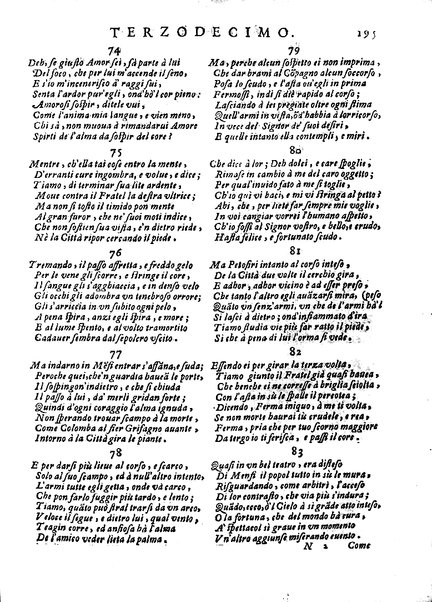 TERZODECIMO. 195
74
Deh, se giusto Amor sei, fà parte à lui
Del foco, che per lui m'accende il seno,
E s'io m'incenerisco à' raggi sui,
Senta l'ardor pur'egli, ond'hò'l cor pieno:
Amorosi sospir, ditele vui,
Come l'anima mia langue, e vien meno,
Chi sà, non muoua à rimandarui Amore
Spirti de l'alma da sospir del core?
75
Mentre, ch'ella tai cose entro la mente,
D'erranti cure ingombra, e volue, e dice;
Tiamo, di terminar sua lite ardente,
Moue contra il Fratel la destra vltrice;
Ma non sì tosto il timido pon mente
Al gran furor, che ne' suoi moti indice,
Che non sostien sua vista, e'n dietro riede,
Nè la Città ripor cercando il piede.
76
Tremando, il passo affretta, e freddo gelo
Per le vene gli scorre, e stringe il core,
Il sangue gli s'agghiaccia, e in denso velo
Gli occhi gli adombra vn tenebroso orrore;
Gli s'arriccia in vn subito ogni pelo,
A pena spira, anzi egli spira, e more;
E al lume spento, e al volto tramortito
Cadauer sembra dal sepolcro vscito.
77
Ma indarno in Mẽfi entrar s'affãna, e suda;
Peroche quei, ch'n guardia hauea le porte,
Il sospingon'indietro, e che si chiuda
Il passo à lui, da' merli gridan forte;
Quindi d'ogni coraggio l'alma ignuda,
Non sperando trouar scampo à la morte,
Come Colomba al fier Grifagno auante,
Intorno à la Città gira le piante.
78
E per darsi più lieue al corso, e scarco,
Solo al suo scampo, ed à null'altro intento,
L'armi tutte egli getta, onde và carco,
Che pon farlo fuggir più tardo, e lento;
Tiamo, quãto può stral trarsi da vn arco,
Veloce il segue, e dietro lui, qual vento,
Teagin corre, ed ansiosa hà l'alma
De l'amico veder lieta la palma.
79
Ma, perche alcun sospetto ei non imprima,
Che dar brami al Cõpagno alcun soccorso,
Posa lo scudo, e l'asta ou'egli in prima
Fermossi, indi si diè rapido al corso;
Lasciando à lei pregiate oltre ogni stima
Quell'armi in vista, ò d'habbia à lor ricorso,
In vece del Signor de' suoi desiri,
E quelle intanto ella contempli, e miri.
80
Che dice à lor; Deh dolei, e care spoglie,
Rimase in cambio à me del caro oggetto;
Per qual'inuido fato à me si toglie,
Ch'io quì vi baci, e mi vi stringa al petto?
Ahi, che, per liete far sempre mie voglie,
In voi cangiar vorrei l'humano aspetto,
Ch'io fossi al Signor vostro, e bello, e crudo,
Hasta felice, e fortunato scudo.
81
Ma Petosiri intanto al corso inteso,
De la Città due volte il cerchio gira,
E adhor, adhor vicino è ad esser preso,
Che tanto l'altro egli auãzar si mira, (peso
Quãto vn sẽz'armi, vn che de l'armi hà'l
Si lasci à dietro; ond'infiammato d'ira
Tiamo studia vie più far ratto il piede,
Si che à pena di lui l'orma si vede.
82
Essendo ei per girar la terza volta,
Tiamo giunto il Fratel già quasi hauea,
Che benche ei ne corresse à briglia sciolta,
Con l'asta in sù le spalle il percotea;
Dicendo, Ferma iniquo, à me ti volta,
Se non morte haurai sù crudele, e rea,
Ferma, pria che per tuo scorno maggiore
Da tergo io ti ferisca, e passi il core.
83
Quasi in vn bel teatro, era disteso
Di Menfi il popol tutto in sù le mura,
Risguardando, come arbitri, l'acceso
Di lor contrasto, che via più s'indura;
Quãdo, ecco, ò'l Cielo à sì grade atto inteso,
O la fortuna, che del mondo hà cura,
A' spettacol sì graue in vn momento
Vn'altro aggiunse miserando euento.
N 2 Come